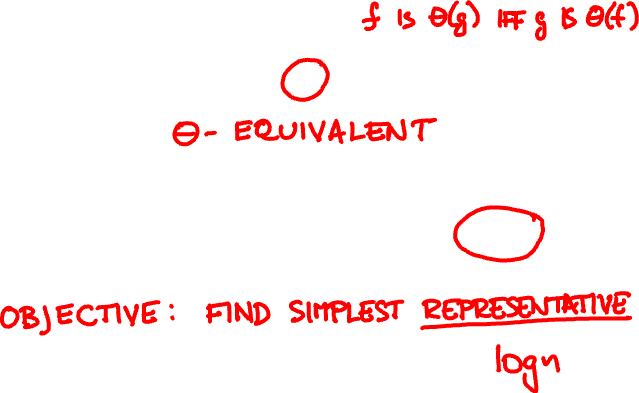 f IS Θ(g) IFF g IS Θ(f)
Θ- EQUIVALENT
OBJECTIVE: FIND SIMPLEST REPRESENTATIVE
logn